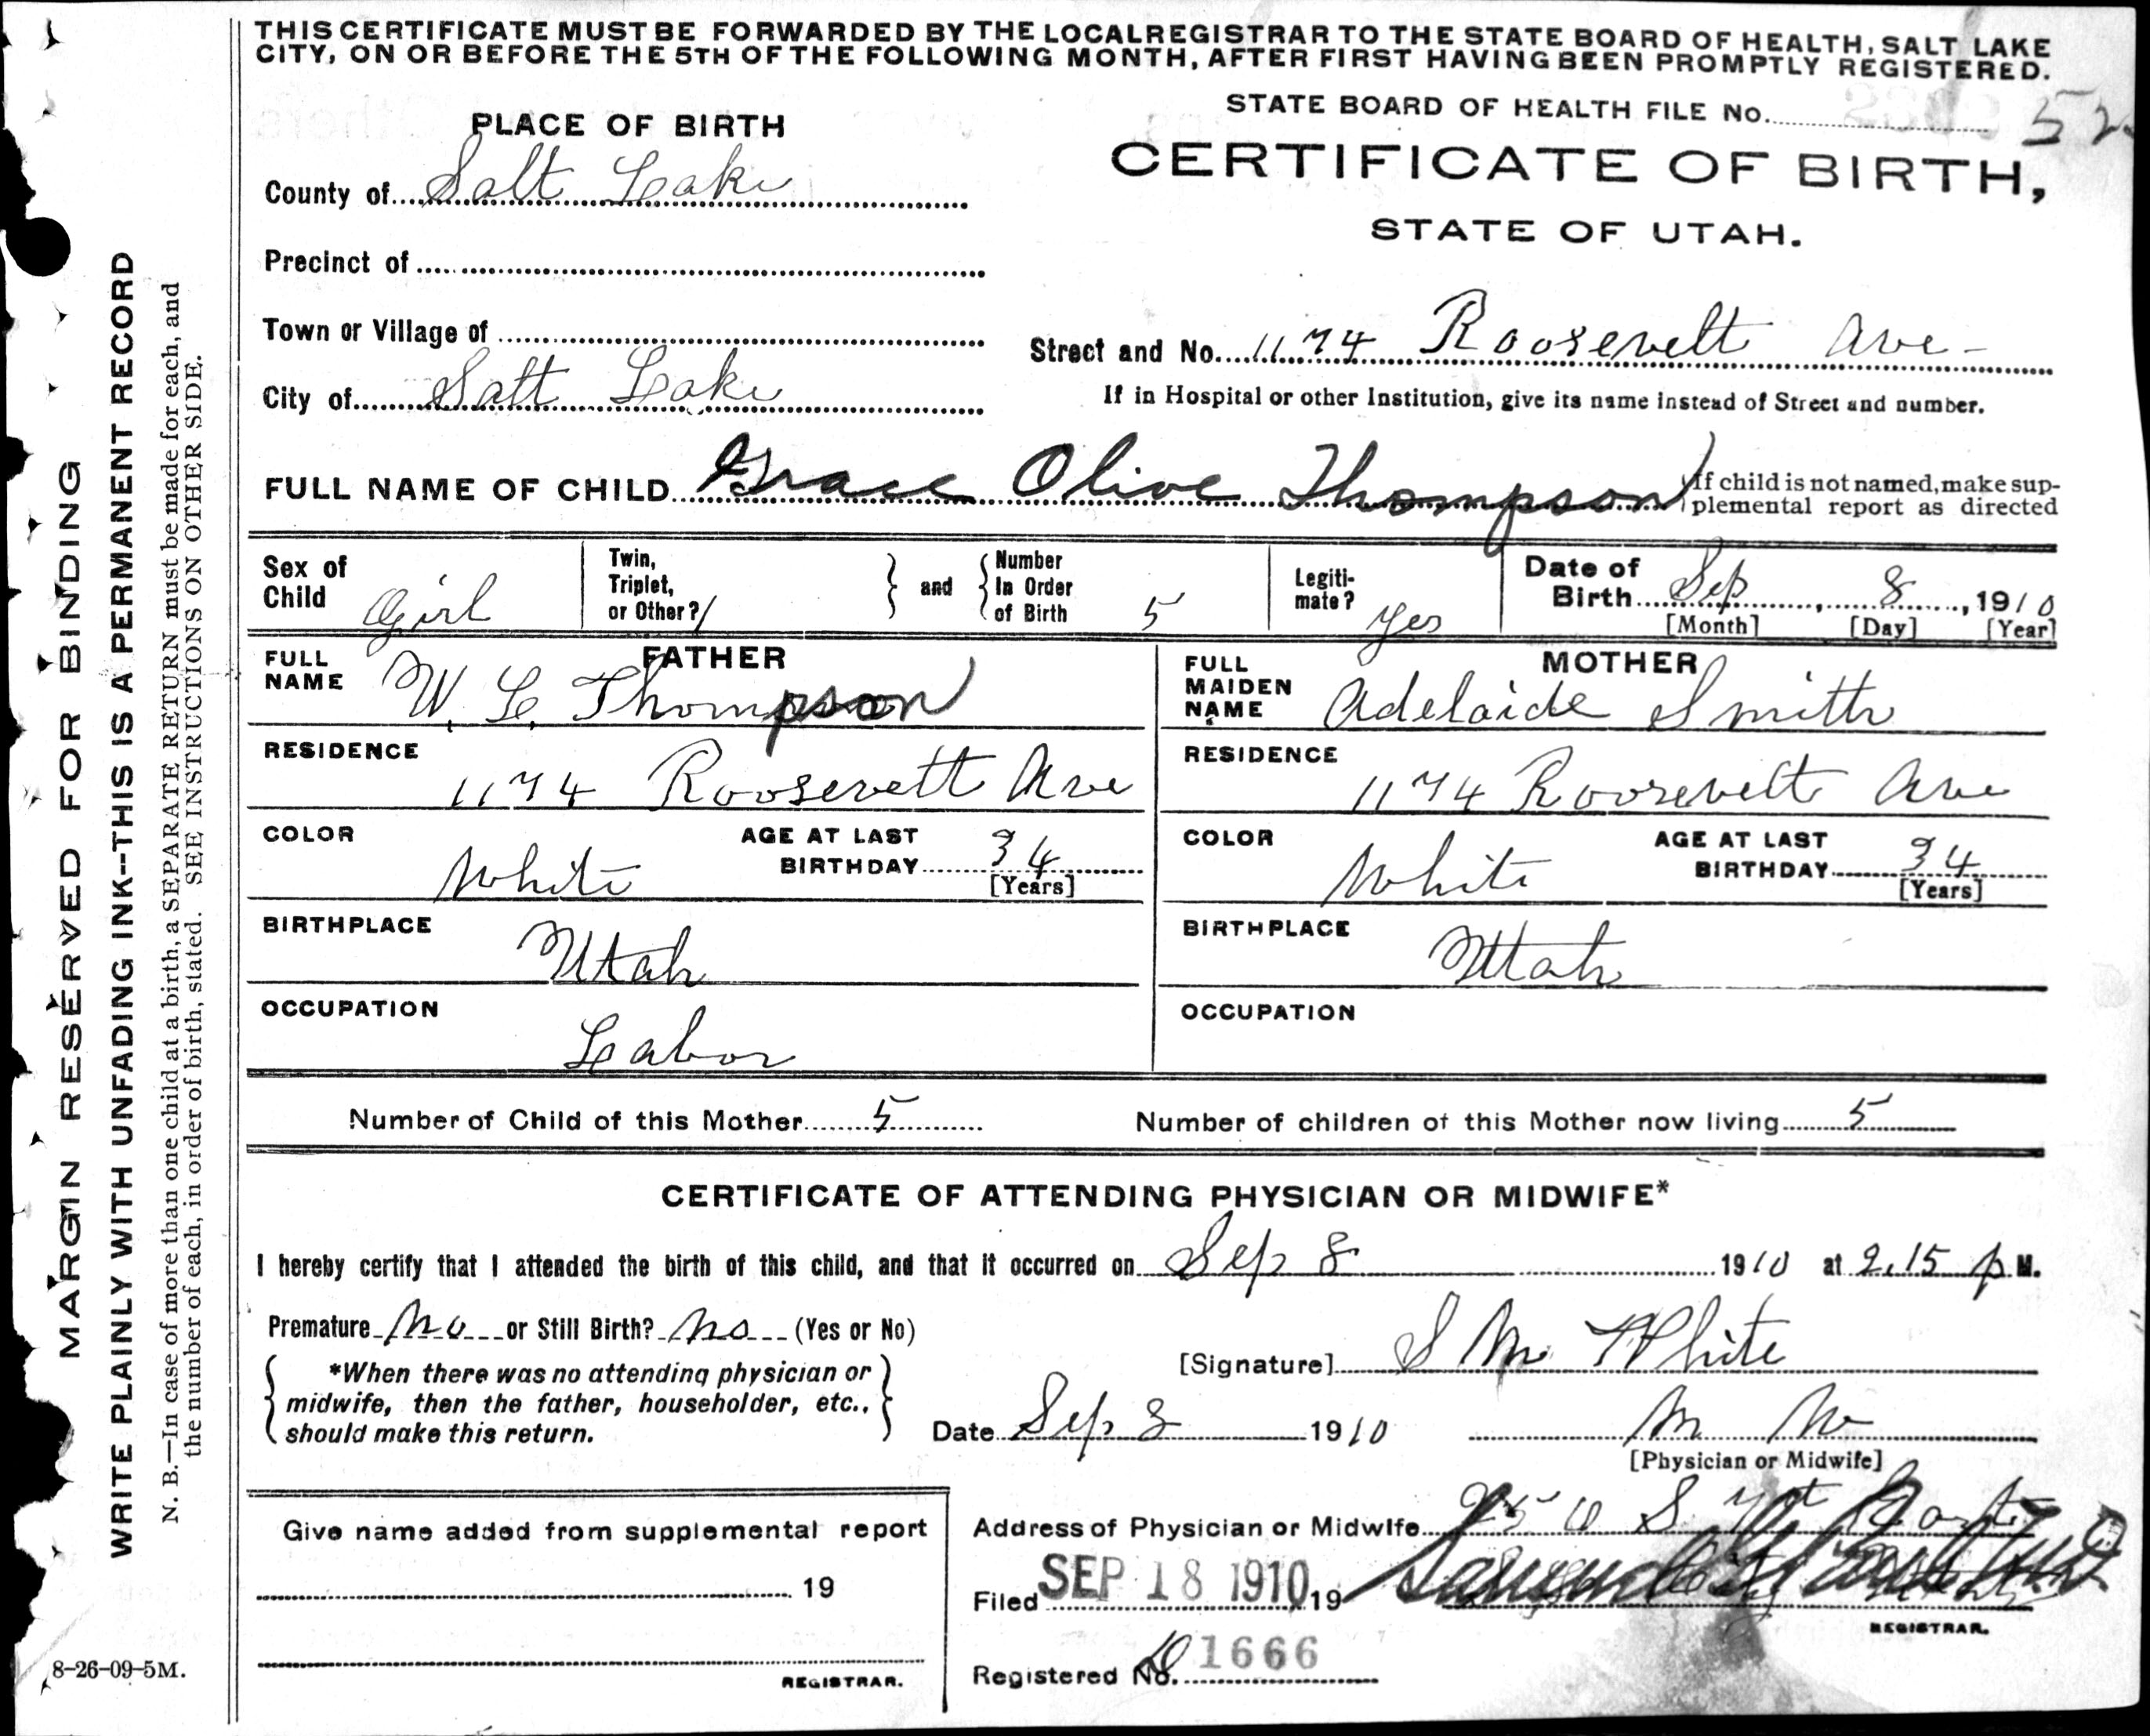 THIS CERTIFICATE MUST BE FORWARDED BY THE LOCAL REGISTRAR TO THE STATE BOARD OF HEALTH, SALT LAKE
CITY, ON OR BEFORE THE 5TH OF THE FOLLOWING MONTH, AFTER FIRST HAVING BEEN PROMPTLY REGISTERED.
STATE BOARD OF HEALTH FILE No. 52
PLACE OF BIRTH
CERTIFICATE OF BIRTH,
STATE OF UTAH.
County of Salt Lake
Precinct of
Town or Village of
Street and No. 1174 Roosevelt Ave
City of Salt Lake
If in Hospital or other Institution, give its name instead of Street and number.
FULL NAME OF CHILD Grace Olive Thompson
If child is not named, make sup-
plemental report as directed
Sex of Child Girl
Twin, Triplet, or Other? 1 and Number In Order of Birth 5
Legiti-mate? Yes
Date of Birth Sep 8, 1910
[Month] [Day] [Year]
FATHER
FULL NAME W. L. Thompson
RESIDENCE 1174 Roosevelt Ave
COLOR White AGE AT LAST BIRTHDAY 34
[Years]
BIRTHPLACE Utah
OCCUPATION Labor
MOTHER
FULL MAIDEN NAME Adelaide Smith
RESIDENCE 1174 Roosevelt Ave
COLOR White AGE AT LAST BIRTHDAY 34
[Years]
BIRTHPLACE Utah
OCCUPATION
Number of Child of this Mother 5 Number of children of this Mother now living 5
CERTIFICATE OF ATTENDING PHYSICIAN OR MIDWIFE*
I hereby certify that I attended the birth of this child, and that it occurred on Sep 8 1910 at 2.15 p M.
Premature No or Still Birth? No (Yes or No)
*When there was no attending physician or
midwife, then the father, householder, etc.,
should make this return.
[Signature] S M White
Date Sep 8 1910
[Physician or Midwife]
Address of Physician or Midwife
Filed SEP 18 1910 19
REGISTRAR.
Registered No. 1666
Give name added from supplemental report
19
REGISTRAR.
8-26-09-5M.
MARGIN RESERVED FOR BINDING
WRITE PLAINLY WITH UNFADING INK--THIS IS A PERMANENT RECORD
N. B.—In case of more than one child at a birth, a SEPARATE RETURN must be made for each, and
the number of each, in order of birth, stated. SEE INSTRUCTIONS ON OTHER SIDE.